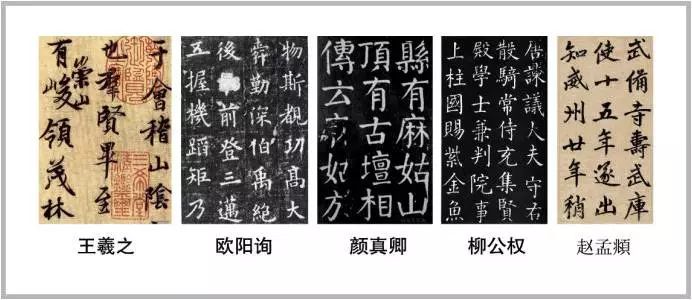 于會稽山陰
也羣賢畢至
崇山
有峻領茂林
王羲之
物斯覩功高大
舜勤深伯禹絕
後前登三邁
五握機蹈矩乃
欧阳询
縣有麻姑山
頂有古壇相
傳云麻姑於
颜真卿
諫議大夫守右
散騎常侍充集賢
殿學士兼判院事
上柱國賜紫金魚
柳公权
武備寺壽武庫
使十五年遂出
知威州廿年稍
赵孟頫